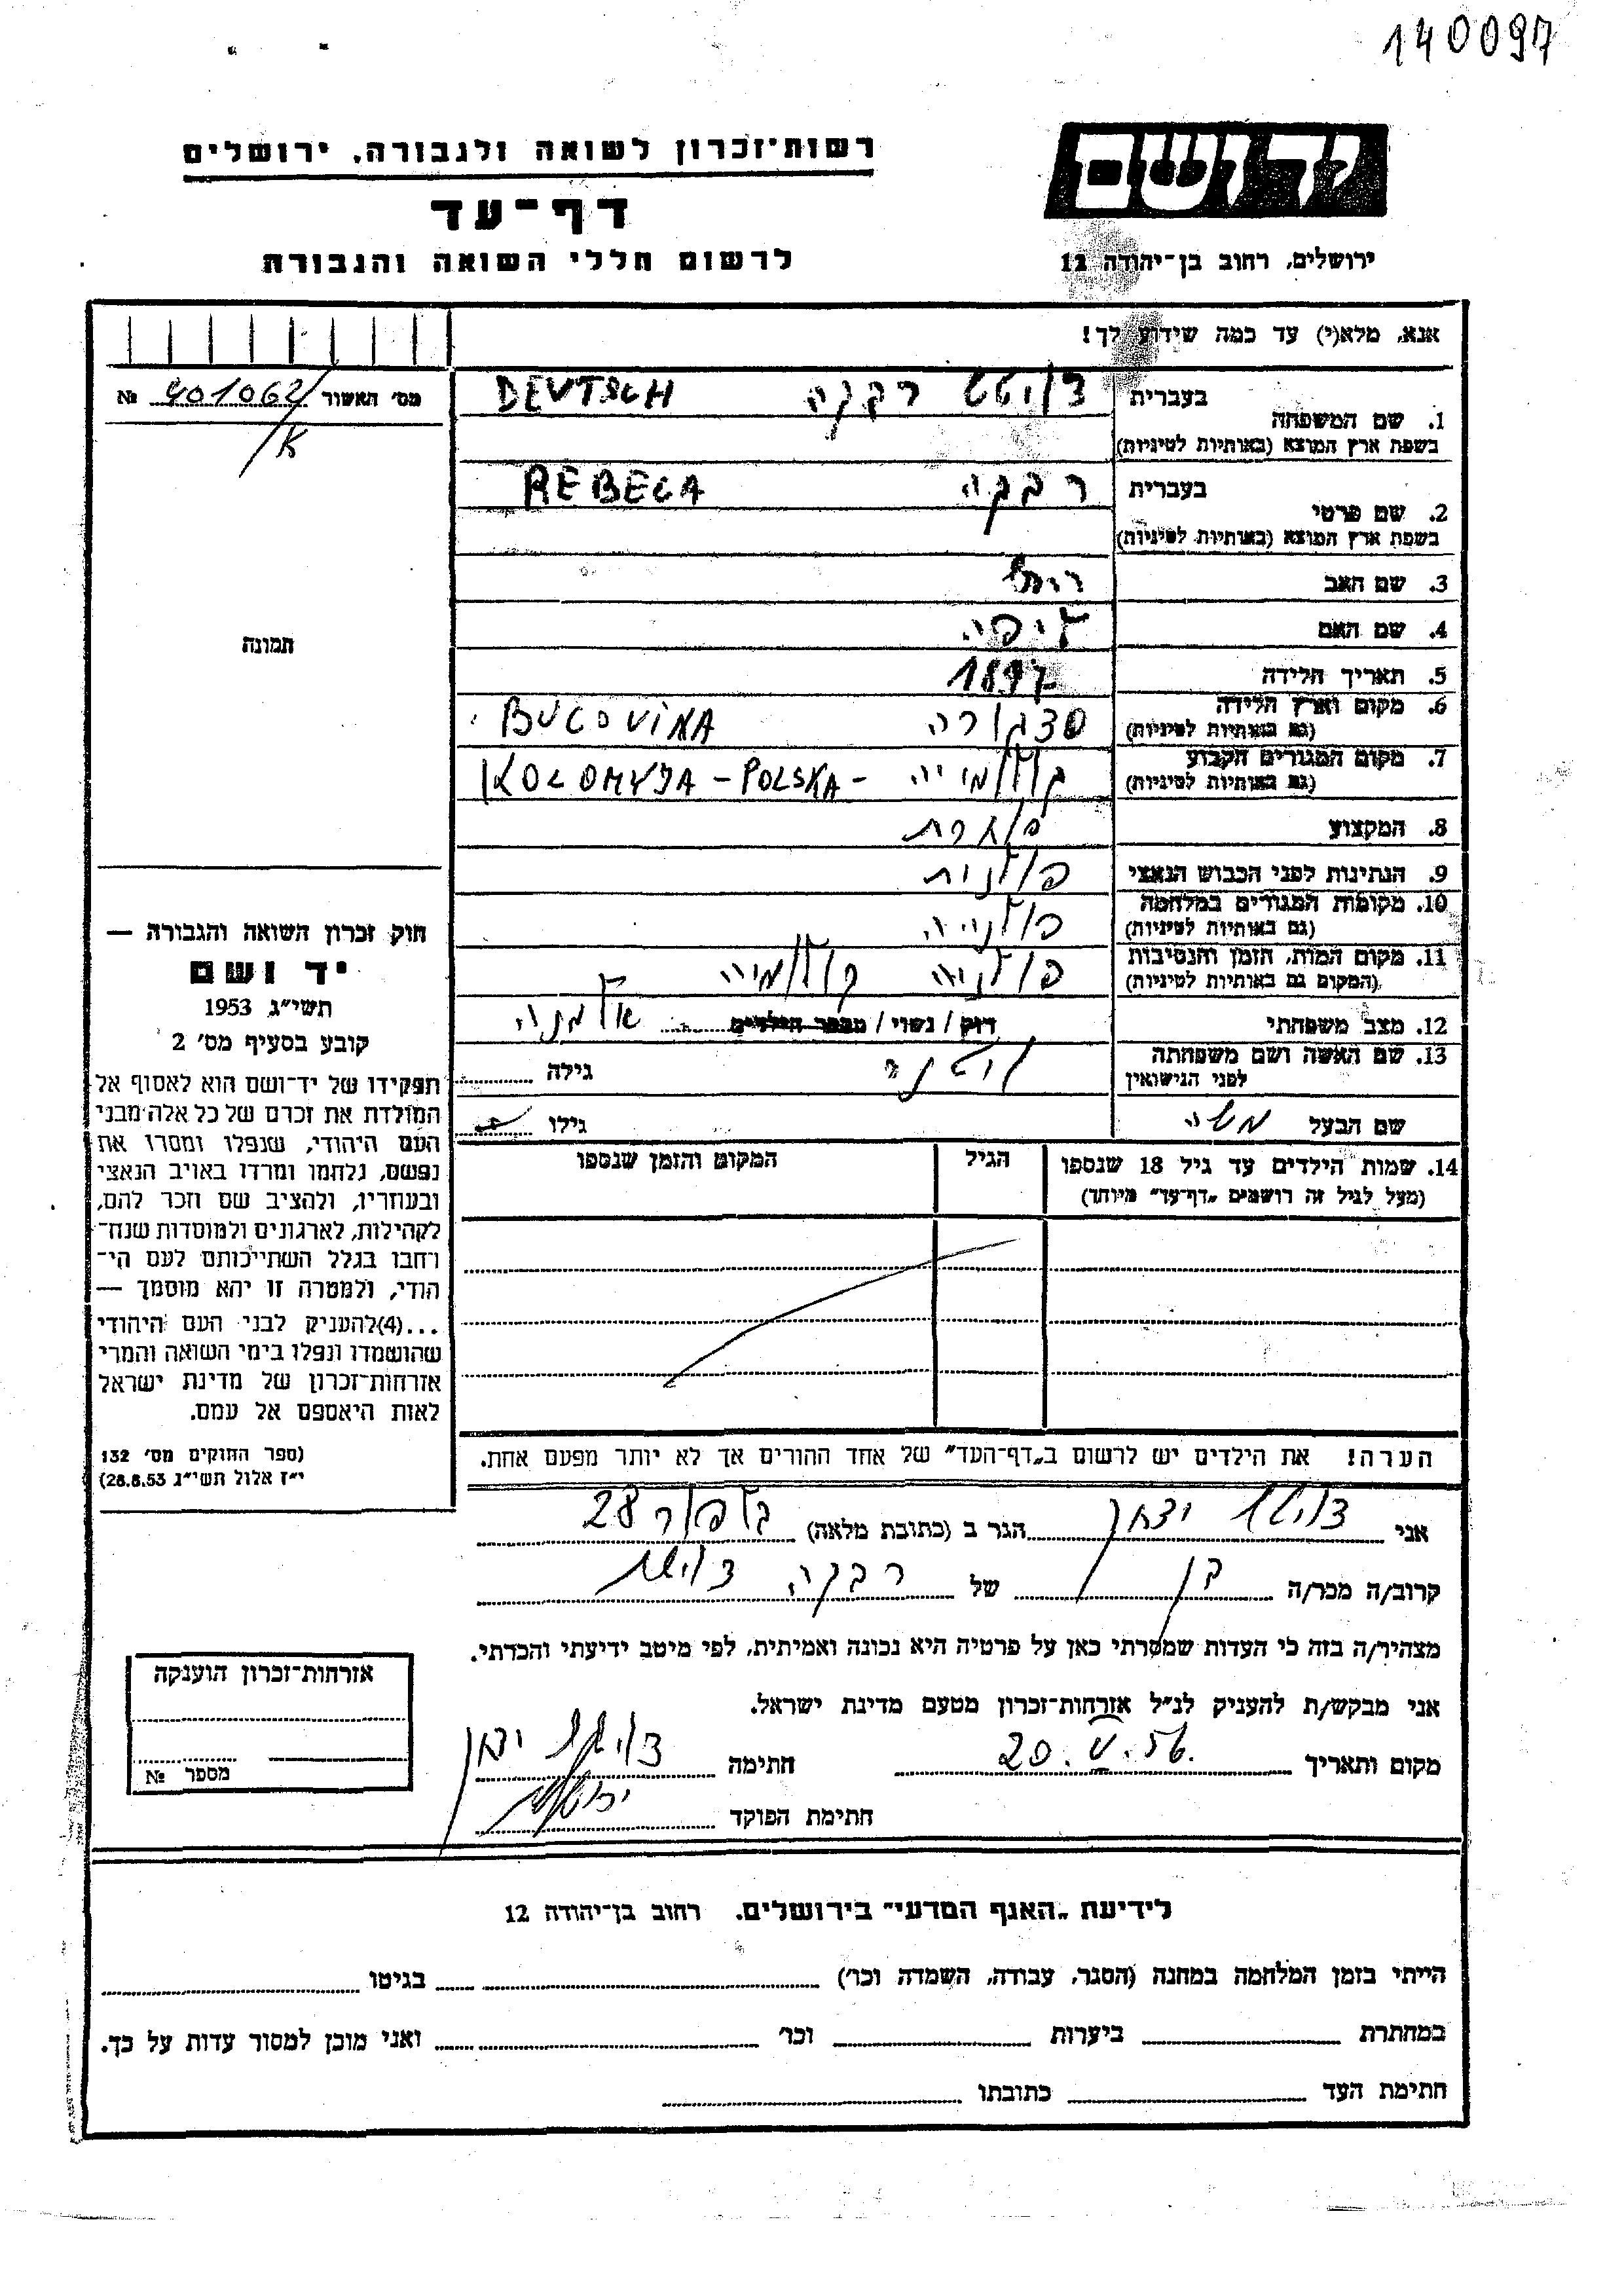 140097
יד ושם
רשות־זכרון לשואה ולגבורה, ירושלים
דף־עד
ירושלים, רחוב בן־יהודה 12
לרשום חללי השואה והגבורה
אנא, מלא(י) עד כמה שידוע לך!
מס׳ האשור 401062/ №
א
1. שם המשפחה בעברית דויטש רבקה DEUTSCH
בשפת ארץ המוצא (באותיות לטיניות)
2. שם פרטי בעברית רבקה REBECA
בשפת ארץ המוצא (באותיות לטיניות)
3. שם האב
4. שם האם ליפה
5. תאריך הלידה 1897
6. מקום וארץ הלידה סדגורה BUCOVINA
(גם באותיות לטיניות)
7. מקום המגורים הקבוע קולומיה KOLOMYJA - POLSKA -
(גם באותיות לטיניות)
8. המקצוע
9. הנתינות לפני הכבוש הנאצי פולנית
10. מקומות המגורים במלחמה פולניה
(גם באותיות לטיניות)
11. מקום המות, הזמן והנסיבות פולניה קולומיה
(המקום גם באותיות לטיניות)
12. מצב משפחתי רווק / נשוי / מספר הילדים אלמנה
13. שם האשה ושם משפחתה גילה
לפני הנישואין
שם הבעל משה גילו
14. שמות הילדים עד גיל 18 שנספו הגיל המקום והזמן שנספו
(מעל לגיל זה רושמים „דף־עד״ מיוחד)
תמונה
חוק זכרון השואה והגבורה —
יד ושם
תשי״ג 1953
קובע בסעיף מס׳ 2
תפקידו של יד־ושם הוא לאסוף אל
המולדת את זכרם של כל אלה מבני
העם היהודי, שנפלו ומסרו את
נפשם, נלחמו ומרדו באויב הנאצי
ובעוזריו, ולהציב שם וזכר להם,
לקהילות, לארגונים ולמוסדות שנח־
רחבו בגלל השתייכותם לעם הי־
הודי, ולמטרה זו יהא מוסמך —
...(4)להעניק לבני העם היהודי
שהושמדו ונפלו בימי השואה והמרי
אזרחות־זכרון של מדינת ישראל
לאות היאספם אל עמם.
(ספר החוקים מס׳ 132
י״ז אלול תשי״ג 28.8.53)
הערה! את הילדים יש לרשום ב„דף־העד״ של אחד ההורים אך לא יותר מפעם אחת.
אני דויטש יצחק הגר ב (כתובת מלאה) 28
קרוב/ה מכר/ה בן של רבקה דויטש
מצהיר/ה בזה כי העדות שמסרתי כאן על פרטיה היא נכונה ואמיתית, לפי מיטב ידיעתי והכרתי.
אני מבקש/ת להעניק לנ״ל אזרחות־זכרון מטעם מדינת ישראל.
מקום ותאריך 20.V.56. חתימה דויטש יצחק
חתימת הפוקד
אזרחות־זכרון הוענקה
מספר №
לידיעת „האגף המדעי״ בירושלים, רחוב בן־יהודה 12
הייתי בזמן המלחמה במחנה (הסגר, עבודה, השמדה וכו׳) בגיטו
במחתרת ביערות וכו׳ ואני מוכן למסור עדות על כך.
חתימת העד כתובתו